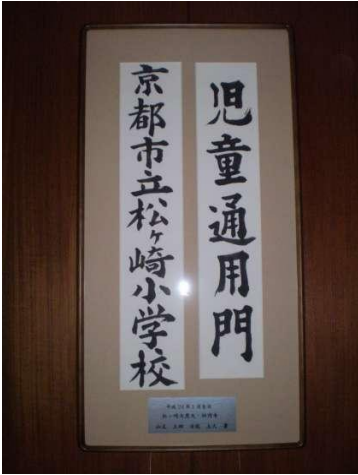 児童通用門
京都市立松ヶ崎小学校